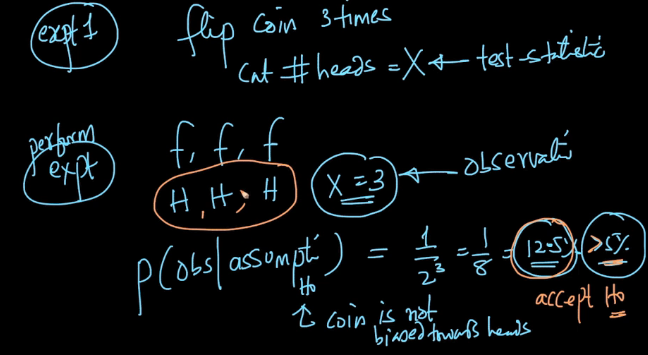 expt 1
flip coin 3 times
cnt # heads = X ← test-statistic
perform
expt
f, f, f
H, H, H
X = 3 ← observati
P(obs | assumpti H₀) = 1/2³ = 1/8 = 12.5% > 5%
accept H₀
↑ coin is not
biased towards heads